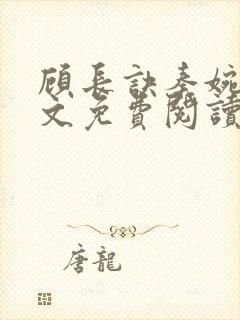 顾長訣秦婉
文免費閱讀
唐龍